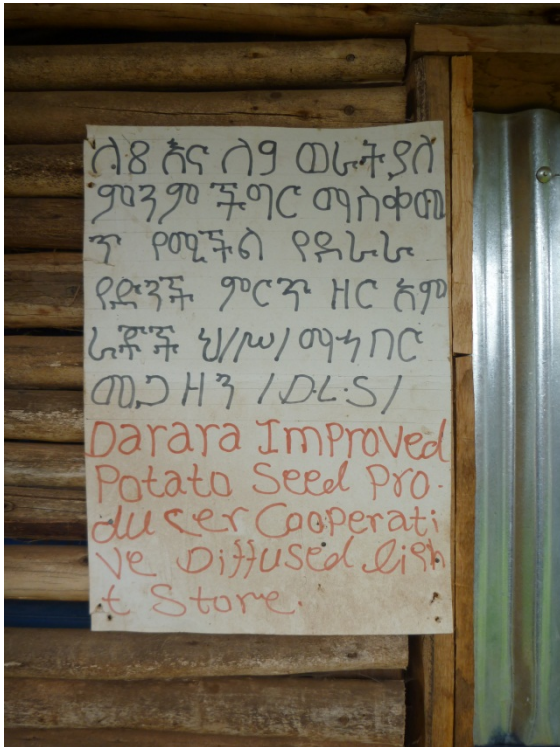 ለ8 እና ለ9 ወራት ያለ
ምንም ችግር ማስቀመ
ጥ የሚችል የደራራ
የድንች ምርጥ ዘር አም
ራቾች ህ/ሥ/ ማኅበር
መጋዘን /D.L.S/
Darara Improved
Potato Seed Pro.
ducer Cooperati
ve Diffused ligh
t Store.